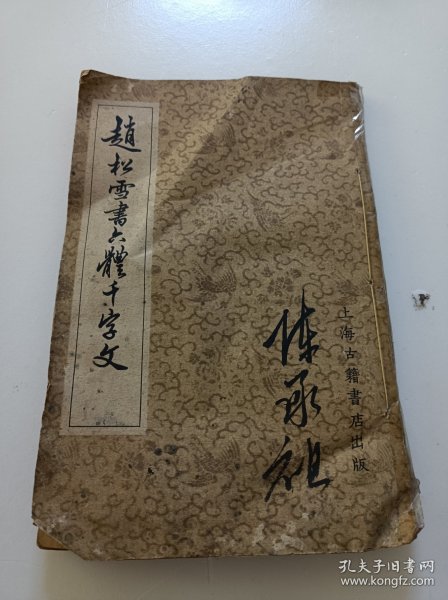 趙松雪書六體千字文
陈承祖
上海古籍書店出版
孔夫子旧书网
www.kongfz.com